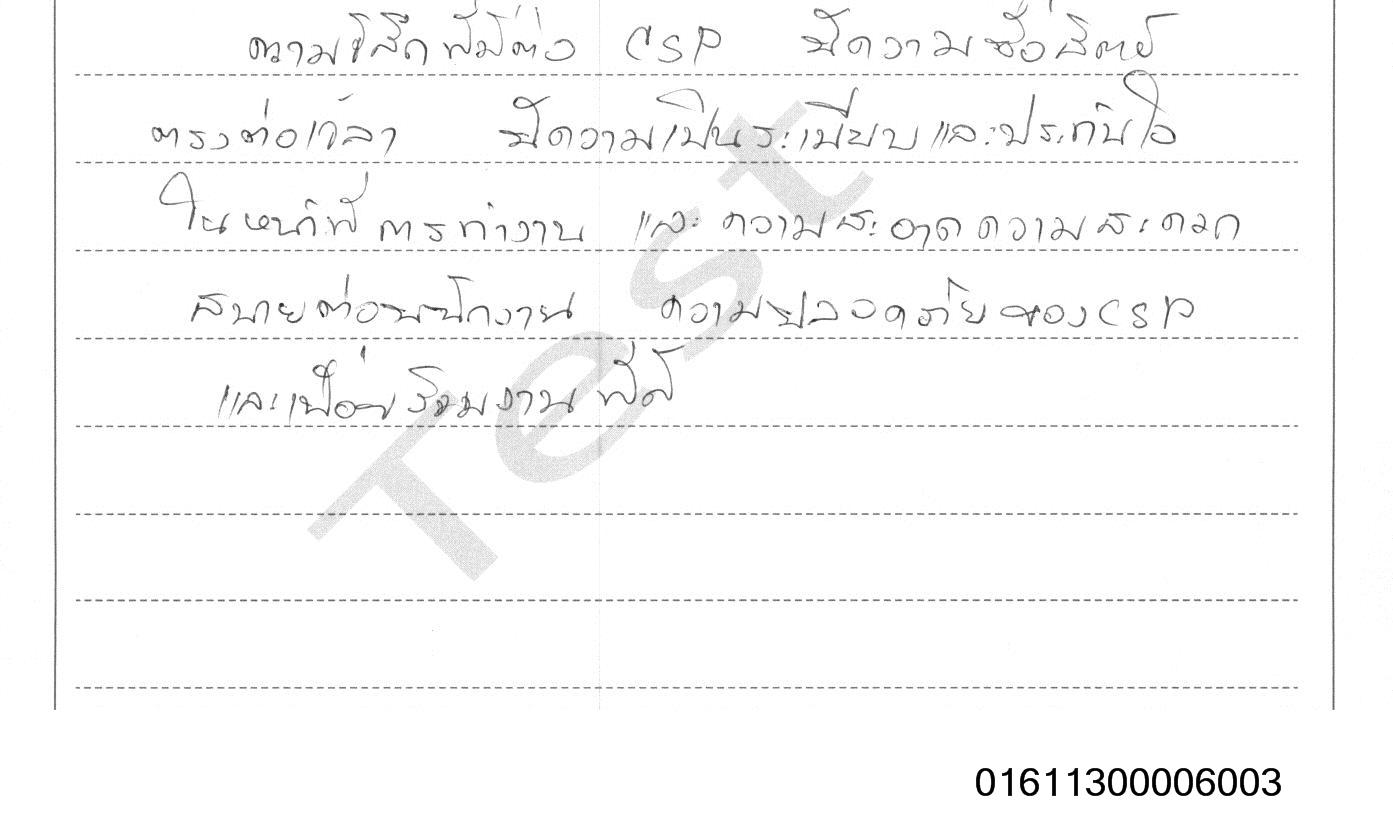 ความรู้สึกที่มีต่อ CSP มีความซื่อสัตย์
ตรงต่อเวลา มีความเป็นระเบียบและประทับใจ
ในหน้าที่การทำงาน และ ความสะอาดความสะดวก
สบายต่อพนักงาน ความปลอดภัยของCSP
และเพื่อนร่วมงานที่ดี
Test
01611300006003